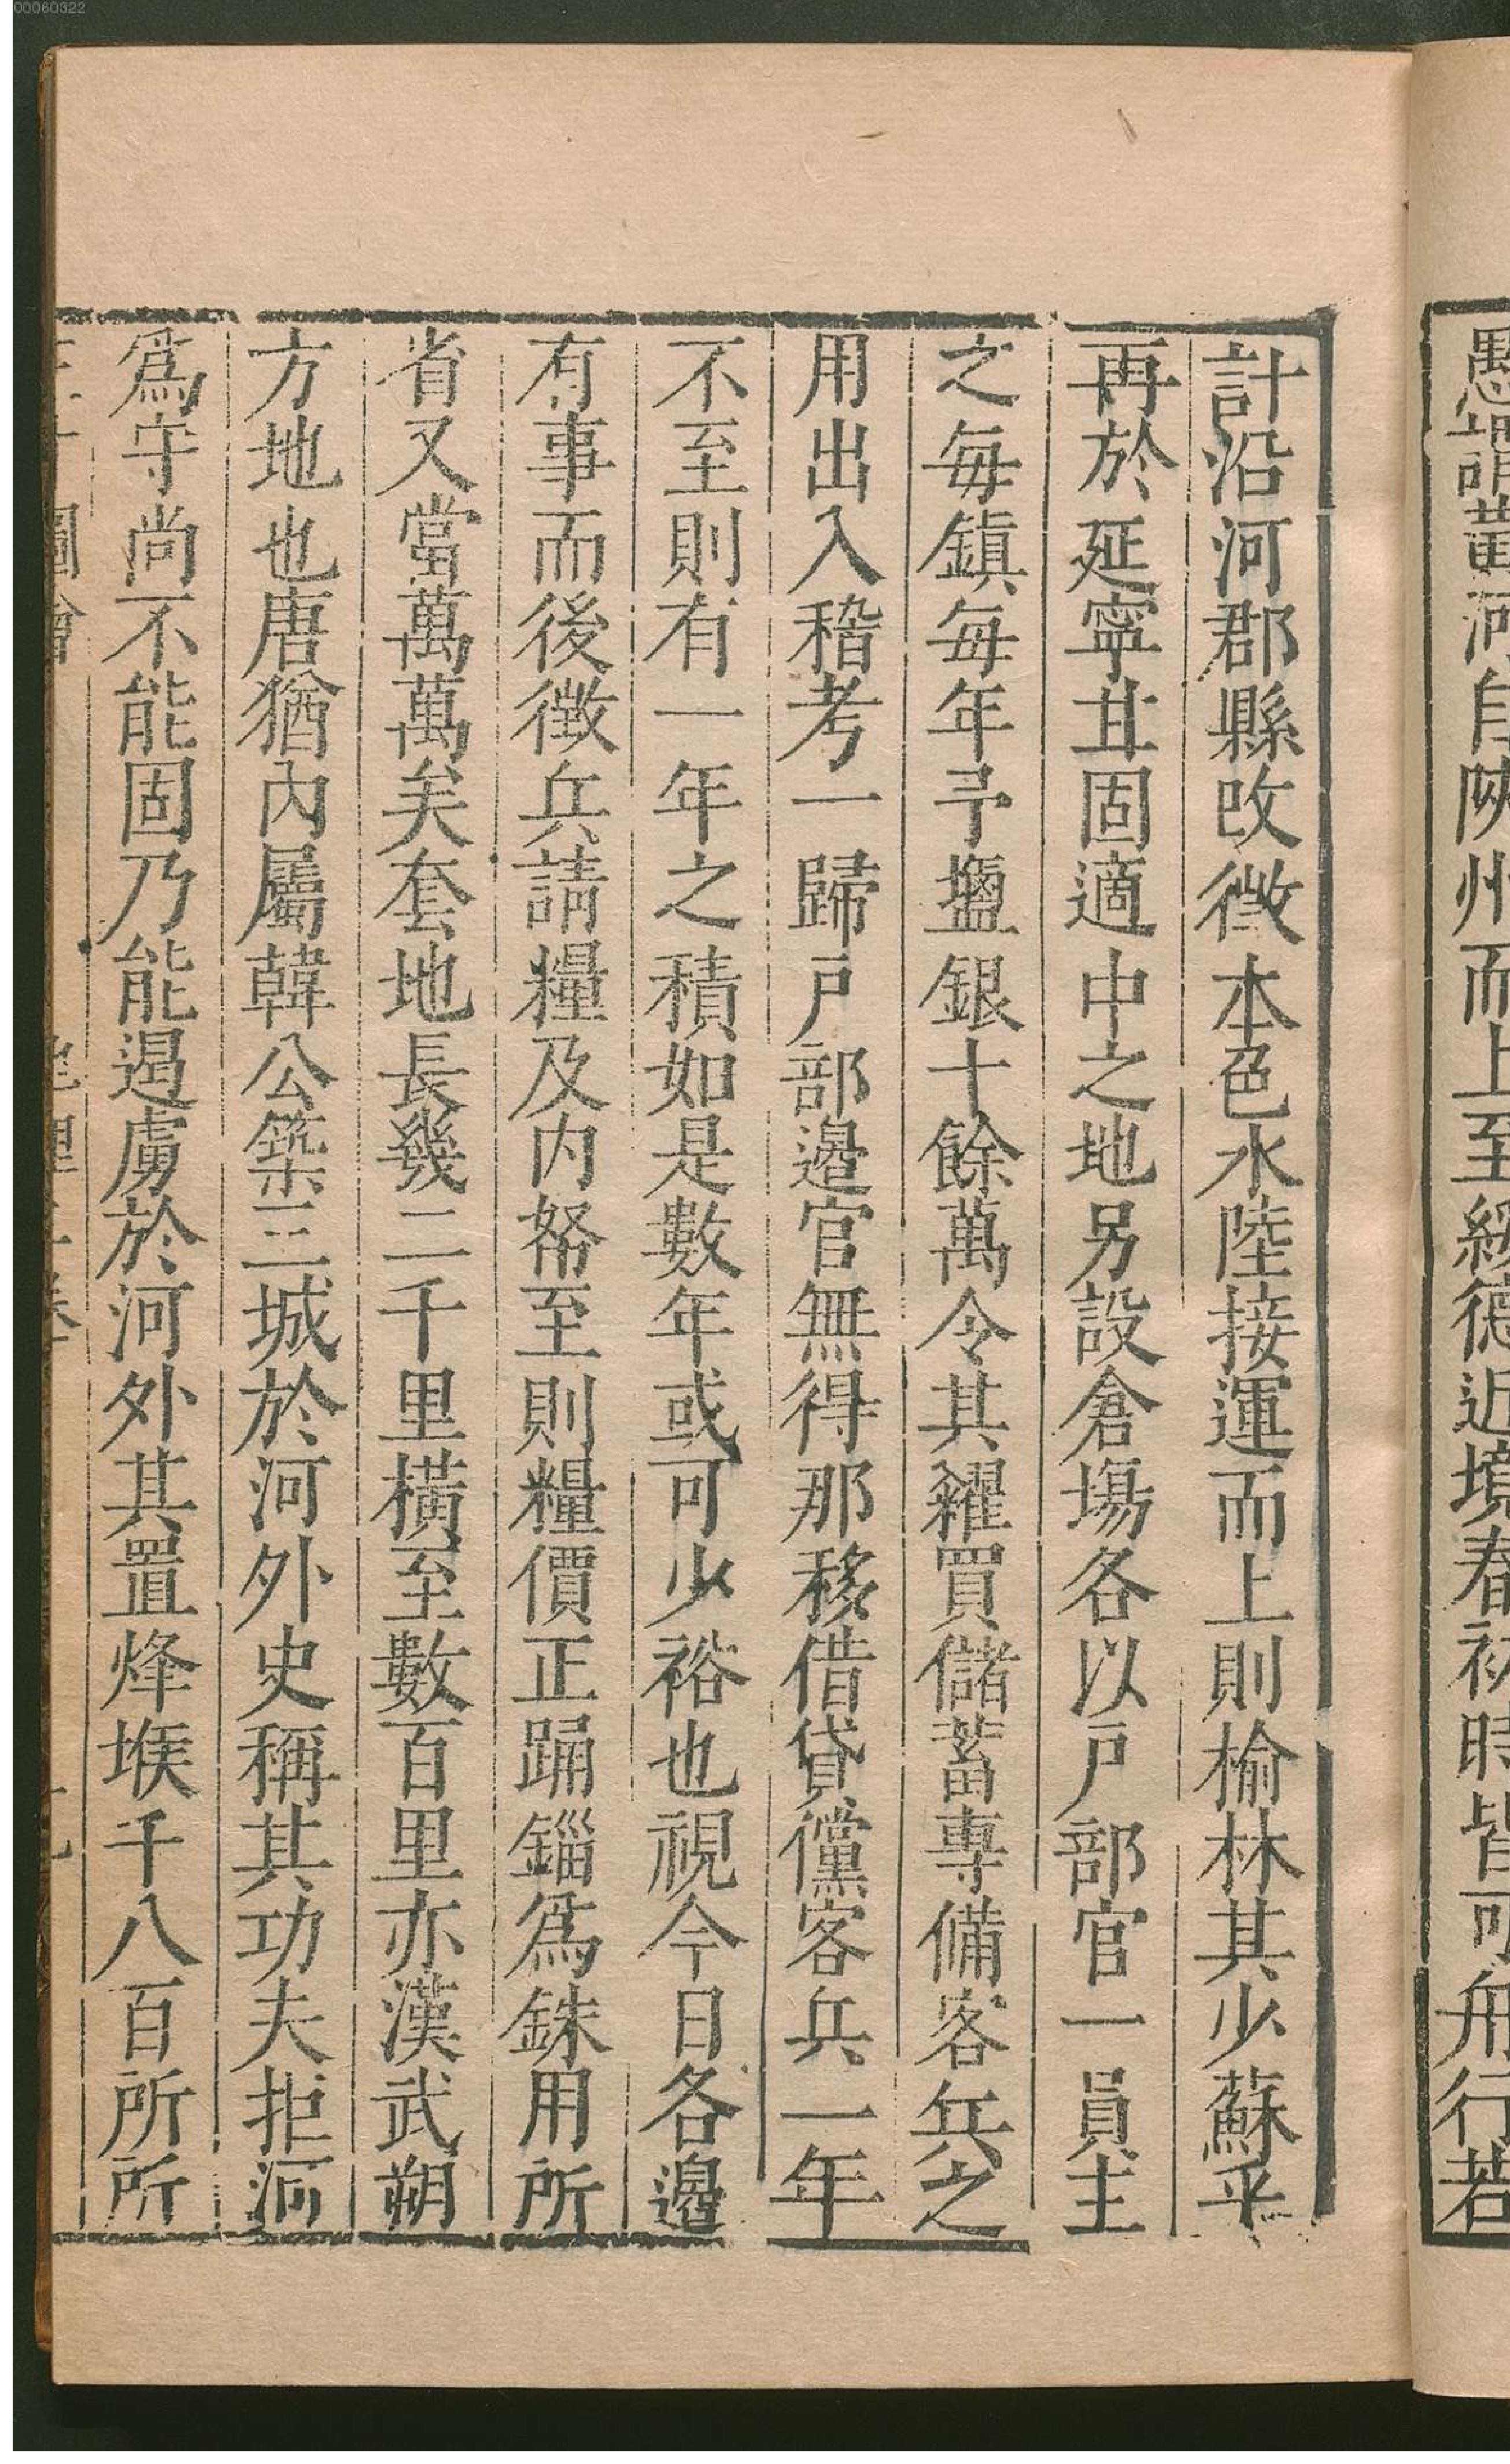 00060322
愚謂黃河自陝州而上至綏德近境春初時皆可舟行若
計沿河郡縣改徵本色水陸接運而上則榆林其少蘇乎
再於延寧甘固適中之地另設倉塲各以戶部官一員主
之每鎮每年予鹽銀十餘萬令其糴買儲蓄專備客兵之
用出入稽考一歸戶部邉官無得那移借貸儻客兵一年
不至則有一年之積如是數年或可少裕也視今日各邉
有事而後徵兵請糧及內帑至則糧價正踊錙爲銖用所
省又當萬萬矣套地長幾二千里橫至數百里亦漢武朔
方地也唐猶內屬韓公築三城於河外史稱其功夫拒河
爲守尚不能固乃能遏虜於河外其置烽堠千八百所所
圖會